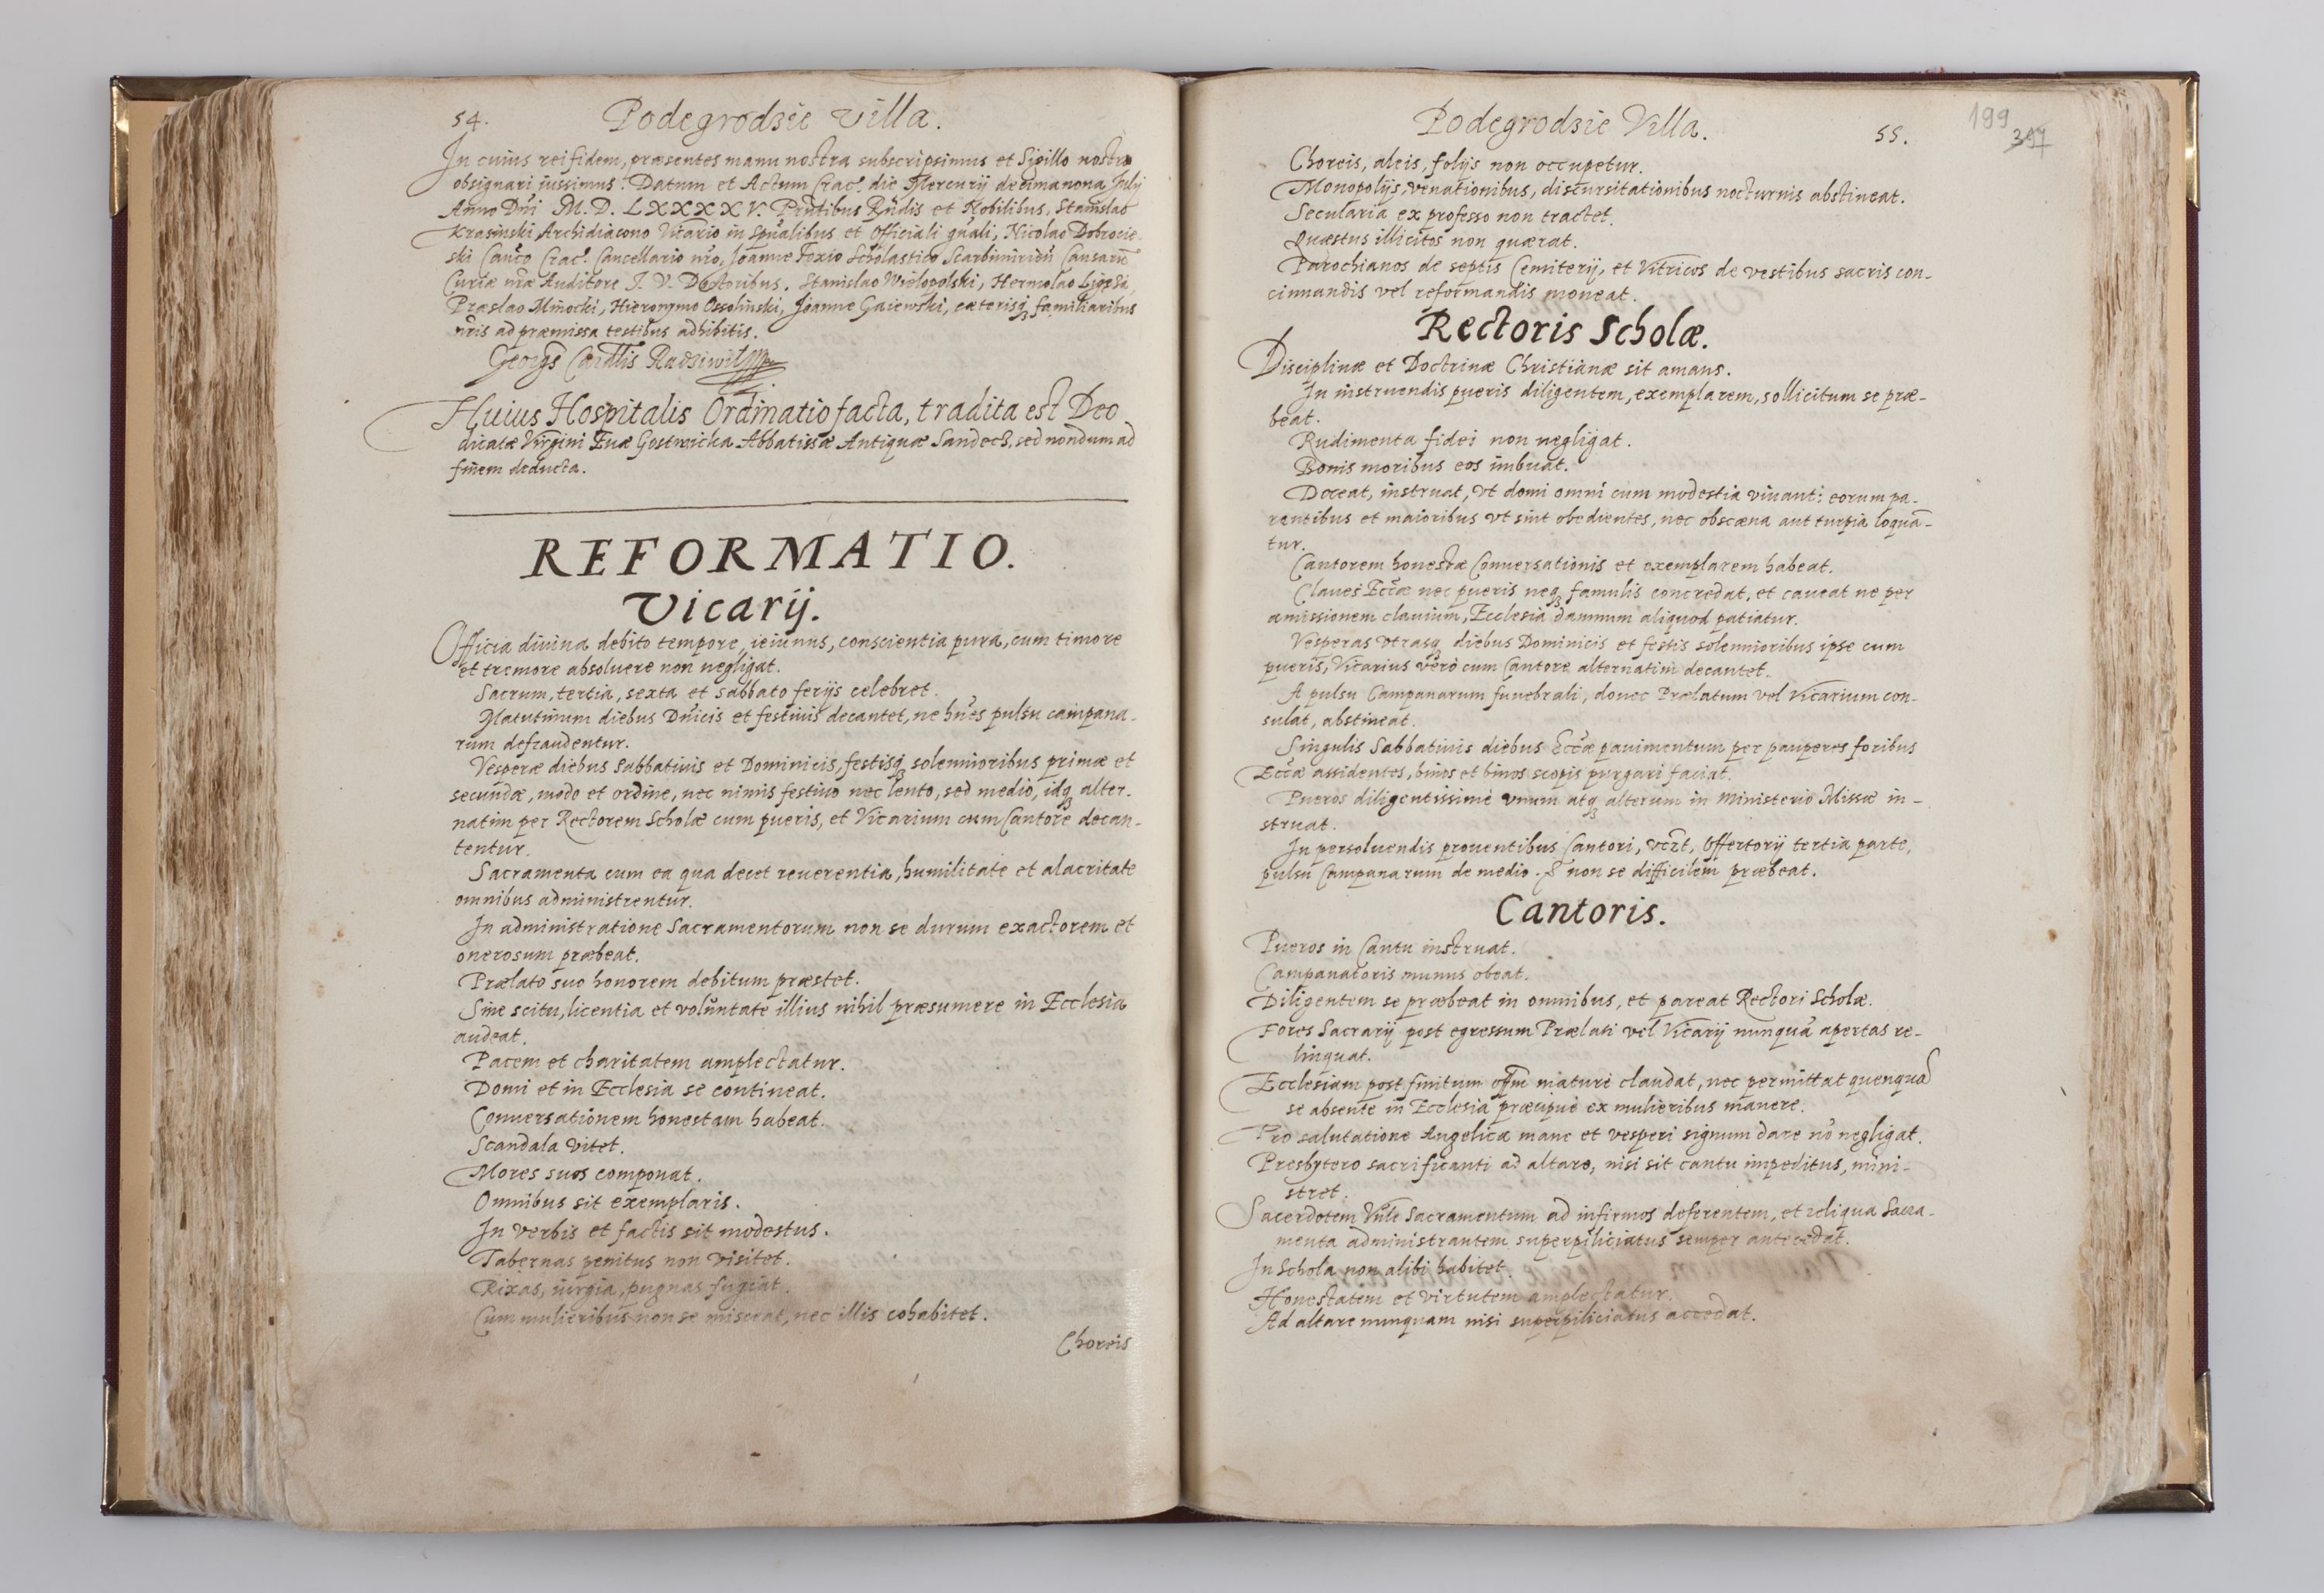 54. Podegrodzie Villa.
In cuius rei fidem, præsentes manu nostra subscripsimus et Sigillo nostro
obsignari iussimus. Datum et Actum Crac. die Mercurij decimanona Julij
Anno Dni M. D. LXXXXV. Pntibus Rndis et Nobilibus, Stanislao
Krasinski Archidiacono Vicario in Spualibus et Officiali gnali, Nicolao Dobrocie-
ski Canco Crac. Cancellario nro, Joanne Foxio Scholastico Scarbimirien Causarū
Curiæ nræ Auditore J. V. Doctoribus. Stanislao Wielopolski, Hermolao Ligęza,
Præslao Minocki, Hieronymo Ossolinski, Joanne Gaiewski, cæterisq familiaribus
nris ad præmissa testibus adhibitis.
Georgs Cardlis Radziwil mpp
Huius Hospitalis Ordinatio facta, tradita est Deo
dicatæ Virgini Euæ Gostwicka Abbatissæ Antiquæ Sandecz, sed nondum ad
finem deducta.
REFORMATIO.
Vicarij.
Officia diuina debito tempore, ieiunus, conscientia pura, cum timore
et tremore absoluere non negligat.
Sacrum, tertia, sexta et sabbato ferijs celebret.
Matutinum diebus Dnicis et festiuis decantet, ne hnes pulsu campana-
rum defraudentur.
Vesperæ diebus Sabbatiuis et Dominicis, festisq solennioribus primæ et
secundæ, modo et ordine, nec nimis festiuo nec lento, sed medio, idq alter-
natim per Rectorem Scholæ cum pueris, et Vicarium cum Cantore decan-
tentur.
Sacramenta cum ea qua decet reuerentia, humilitate et alacritate
omnibus administrentur.
In administratione Sacramentorum non se durum exactorem et
onerosum præbeat.
Prælato suo honorem debitum præstet.
Sine scitu, licentia et voluntate illius nihil præsumere in Ecclesia
audeat.
Pacem et charitatem amplectatur.
Domi et in Ecclesia se contineat.
Conuersationem honestam habeat.
Scandala vitet.
Mores suos componat.
Omnibus sit exemplaris.
In verbis et factis sit modestus.
Tabernas penitus non visitet.
Rixas, iurgia, pugnas fugiat.
Cum mulieribus non se misceat, nec illis cohabitet.
Choreis
Podegrodzie Villa. 55. 199
397
Choreis, aleis, folijs non occupetur.
Monopolijs, venationibus, discursitationibus nocturnis abstineat.
Secularia ex professo non tractet.
Quæstus illicitos non quærat.
Parochianos de septis Cemiterij, et Vitricos de vestibus sacris con-
cinnandis vel reformandis moneat.
Rectoris Scholæ.
Disciplinæ et Doctrinæ Christianæ sit amans.
In instruendis pueris diligentem, exemplarem, sollicitum se præ-
beat.
Rudimenta fidei non negligat.
Bonis moribus eos imbuat.
Doceat, instruat, vt domi omni cum modestia viuant; eorum pa-
rentibus et maioribus vt sint obedientes, nec obscæna aut turpia loquā-
tur.
Cantorem honestæ Conuersationis et exemplarem habeat.
Claues Eccæ nec pueris neq famulis concredat, et caueat ne per
amissionem clauium, Ecclesia damnum aliquod patiatur.
Vesperas vtrasq diebus Dominicis et festis solennioribus ipse cum
pueris, Vicarius verò cum Cantore alternatim decantet.
A pulsu Campanarum funebrali, donec Prælatum vel Vicarium con-
sulat, abstineat.
Singulis Sabbatiuis diebus Eccæ pauimentum per pauperes foribus
Eccæ assidentes, binos et binos scopis purgari faciat.
Pueros diligentissimè vnum atq alterum in Ministerio Missæ in-
struat.
In persoluendis prouentibus Cantori, vczt, Offertorij tertia parte,
pulsu Campanarum de medio non se difficilem præbeat.
Cantoris.
Pueros in Cantu instruat.
Campanatoris munus obeat.
Diligentem se præbeat in omnibus, et pareat Rectori Scholæ.
Fores Sacrarij post egressum Prælati vel Vicarij nunquā apertas re-
linquat.
Ecclesiam post finitum offm maturè claudat, nec permittat quenquā
se absente in Ecclesia præcipuè ex mulieribus manere.
Pro salutatione Angelica mane et vesperi signum dare nō negligat.
Presbytero sacrificanti ad altare, nisi sit cantu impeditus, mini-
stret.
Sacerdotem Vnle Sacramentum ad infirmos deferentem, et reliqua Sacra-
menta administrantem superpiliciatus semper antecedat.
In Schola non alibi habitet.
Honestatem et virtutem amplectatur.
Ad altare nunquam nisi superpiliciatus accedat.